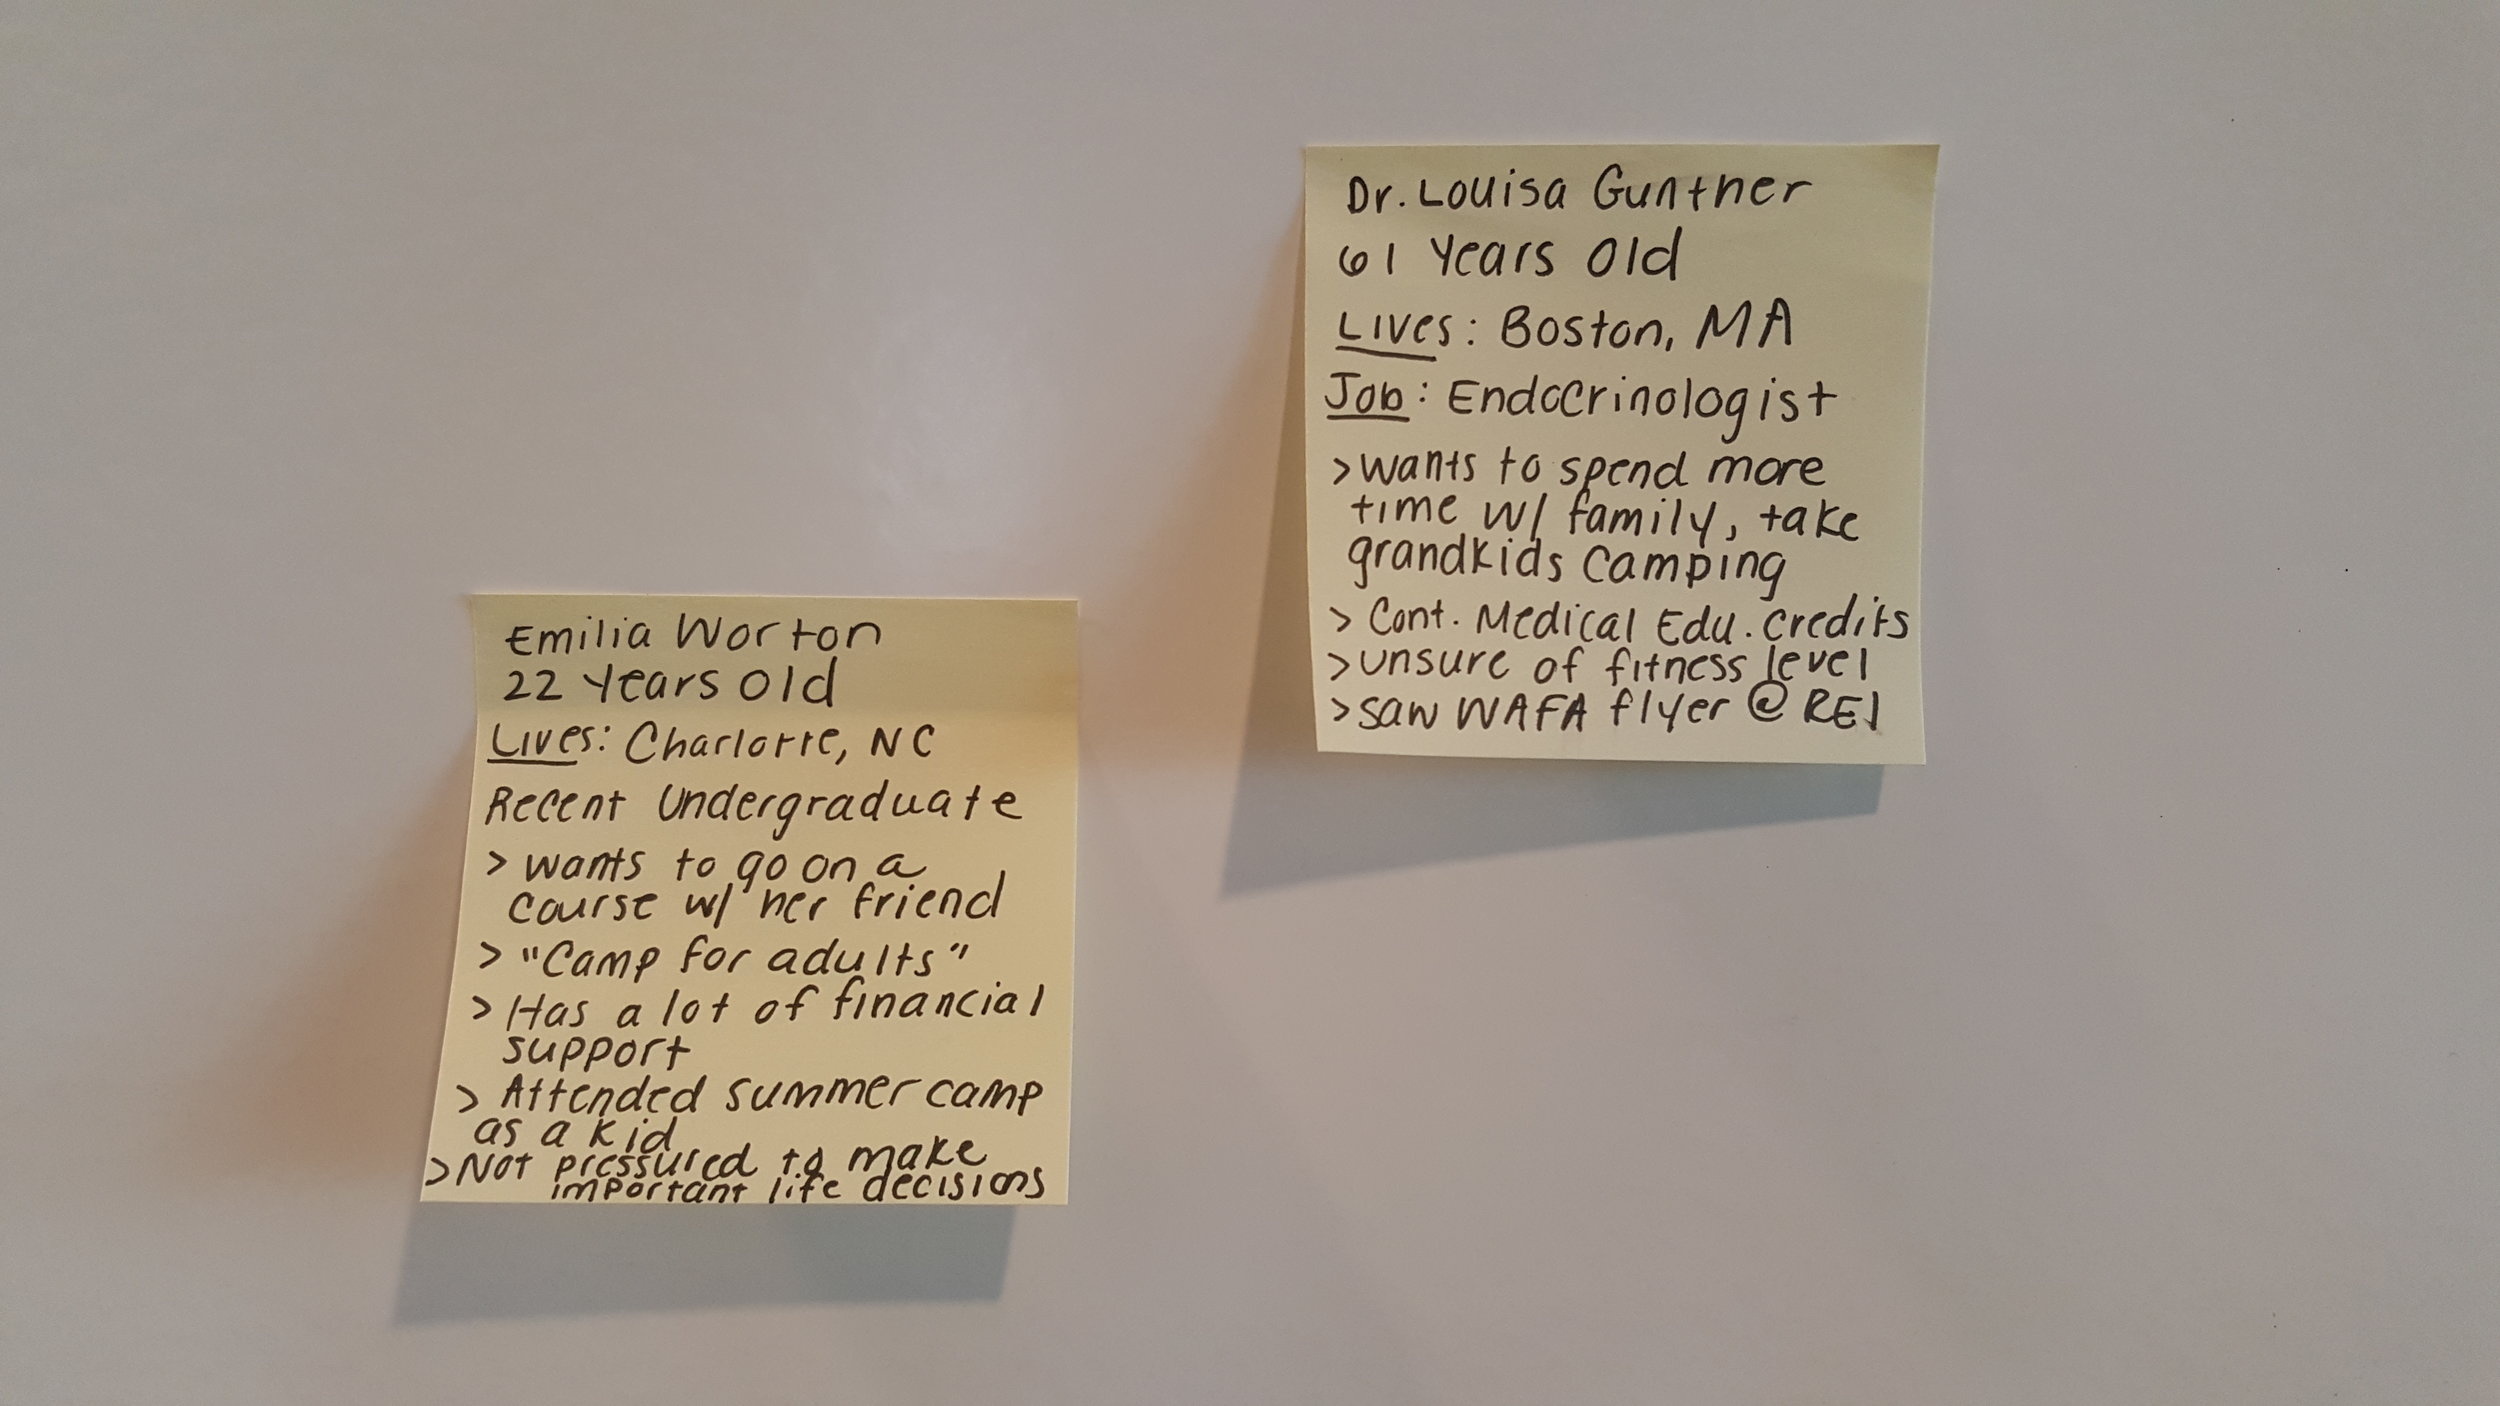 Emilia Worton
22 Years Old
Lives: Charlotte, NC
Recent Undergraduate
> wants to go on a
course w/ her friend
> "Camp for adults"
> Has a lot of financial
support
> Attended summer camp
as a kid
> Not pressured to make
important life decisions
Dr. Louisa Gunther
61 Years Old
Lives: Boston, MA
Job: Endocrinologist
> wants to spend more
time w/ family, take
grandkids camping
> Cont. Medical Edu. credits
> unsure of fitness level
> saw WAFA flyer @ REI